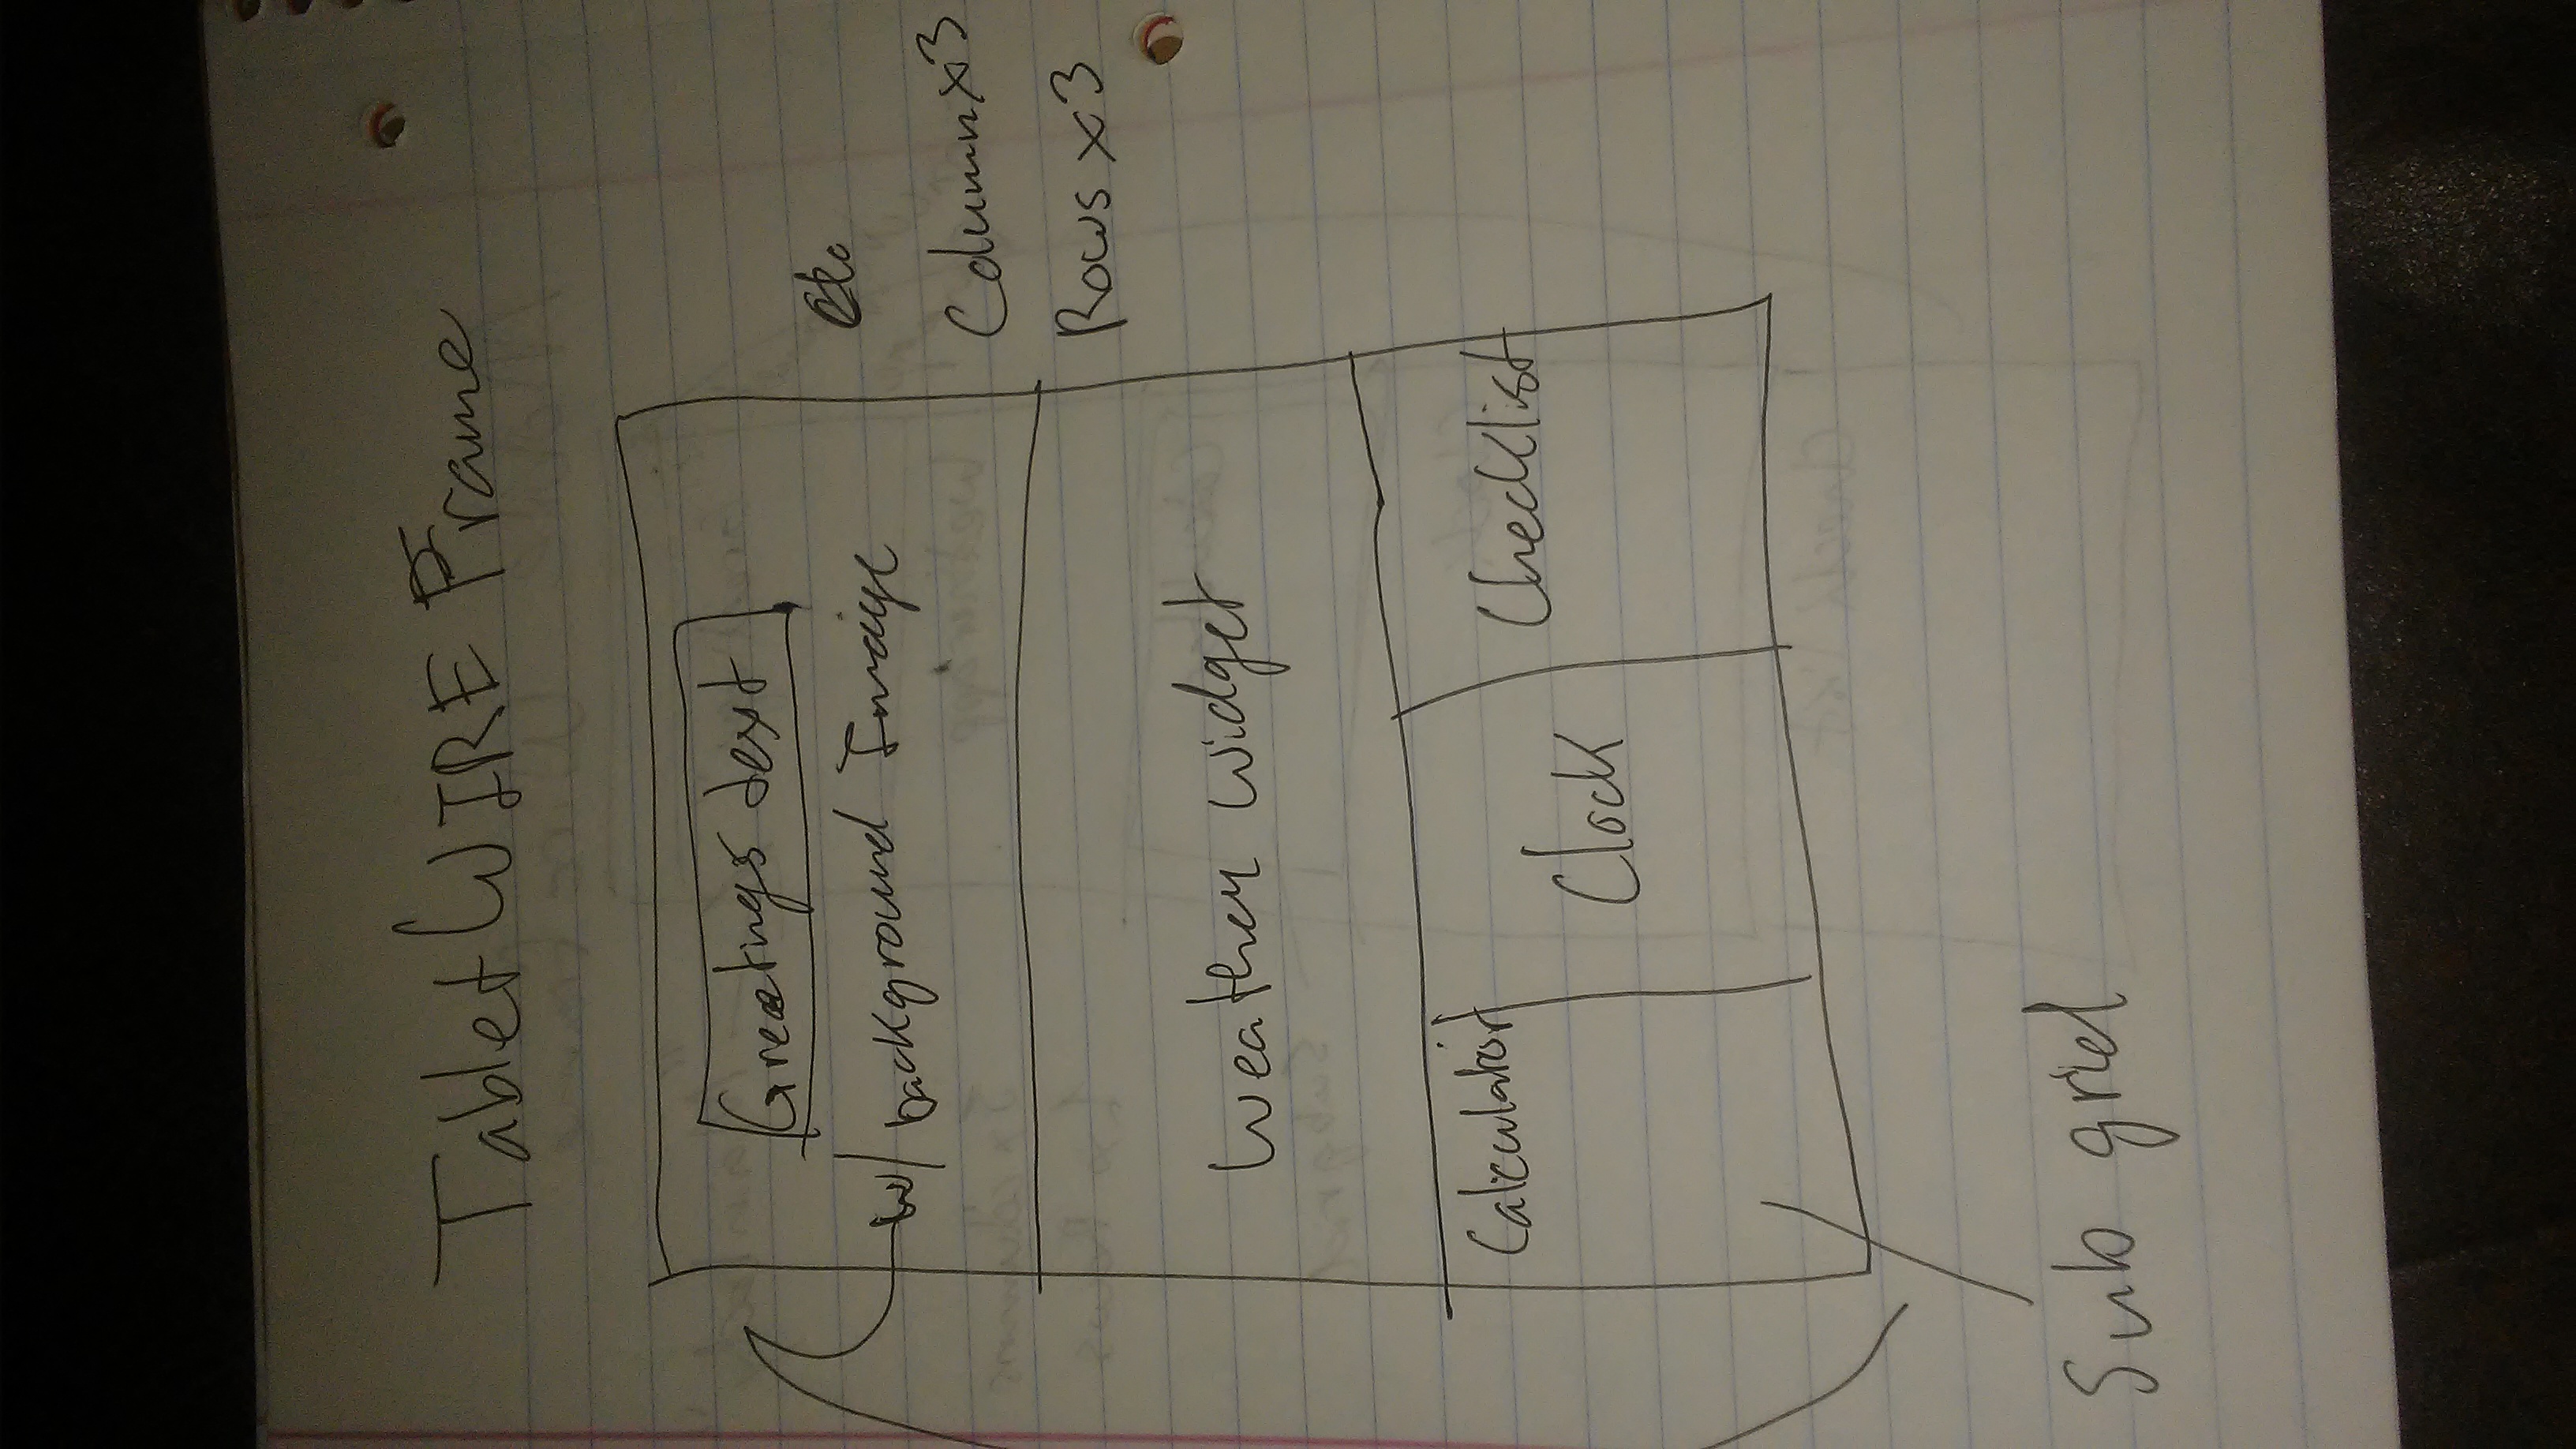 Tablet WIRE Frame
Greetings text
w/ background Image
Column x3
Rows x3
Weather widget
Calculator
Clock
Checklist
Sub grid